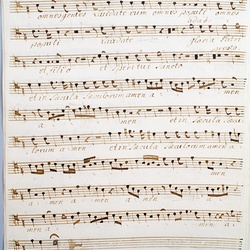 omnes gentes laudate eum omnes populi omnes
populi laudate gloria Patri
et filio et Spiritui Sancto
et in Sæcula Sæculorum amen a
a men et in Sæcula Sæcu
lorum a men et in Sæcula Sæculorum amen a
a men a
a men a men a
a men a
men